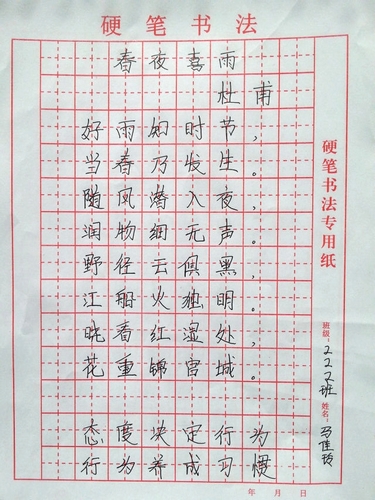 硬笔书法
春夜喜雨
杜甫
好雨知时节，
当春乃发生。
随风潜入夜，
润物细无声。
野径云俱黑，
江船火独明。
晓看红湿处，
花重锦官城。
态度决定行为
行为养成习惯
年 月 日
硬笔书法专用纸
班级：222班 姓名：马佳玲